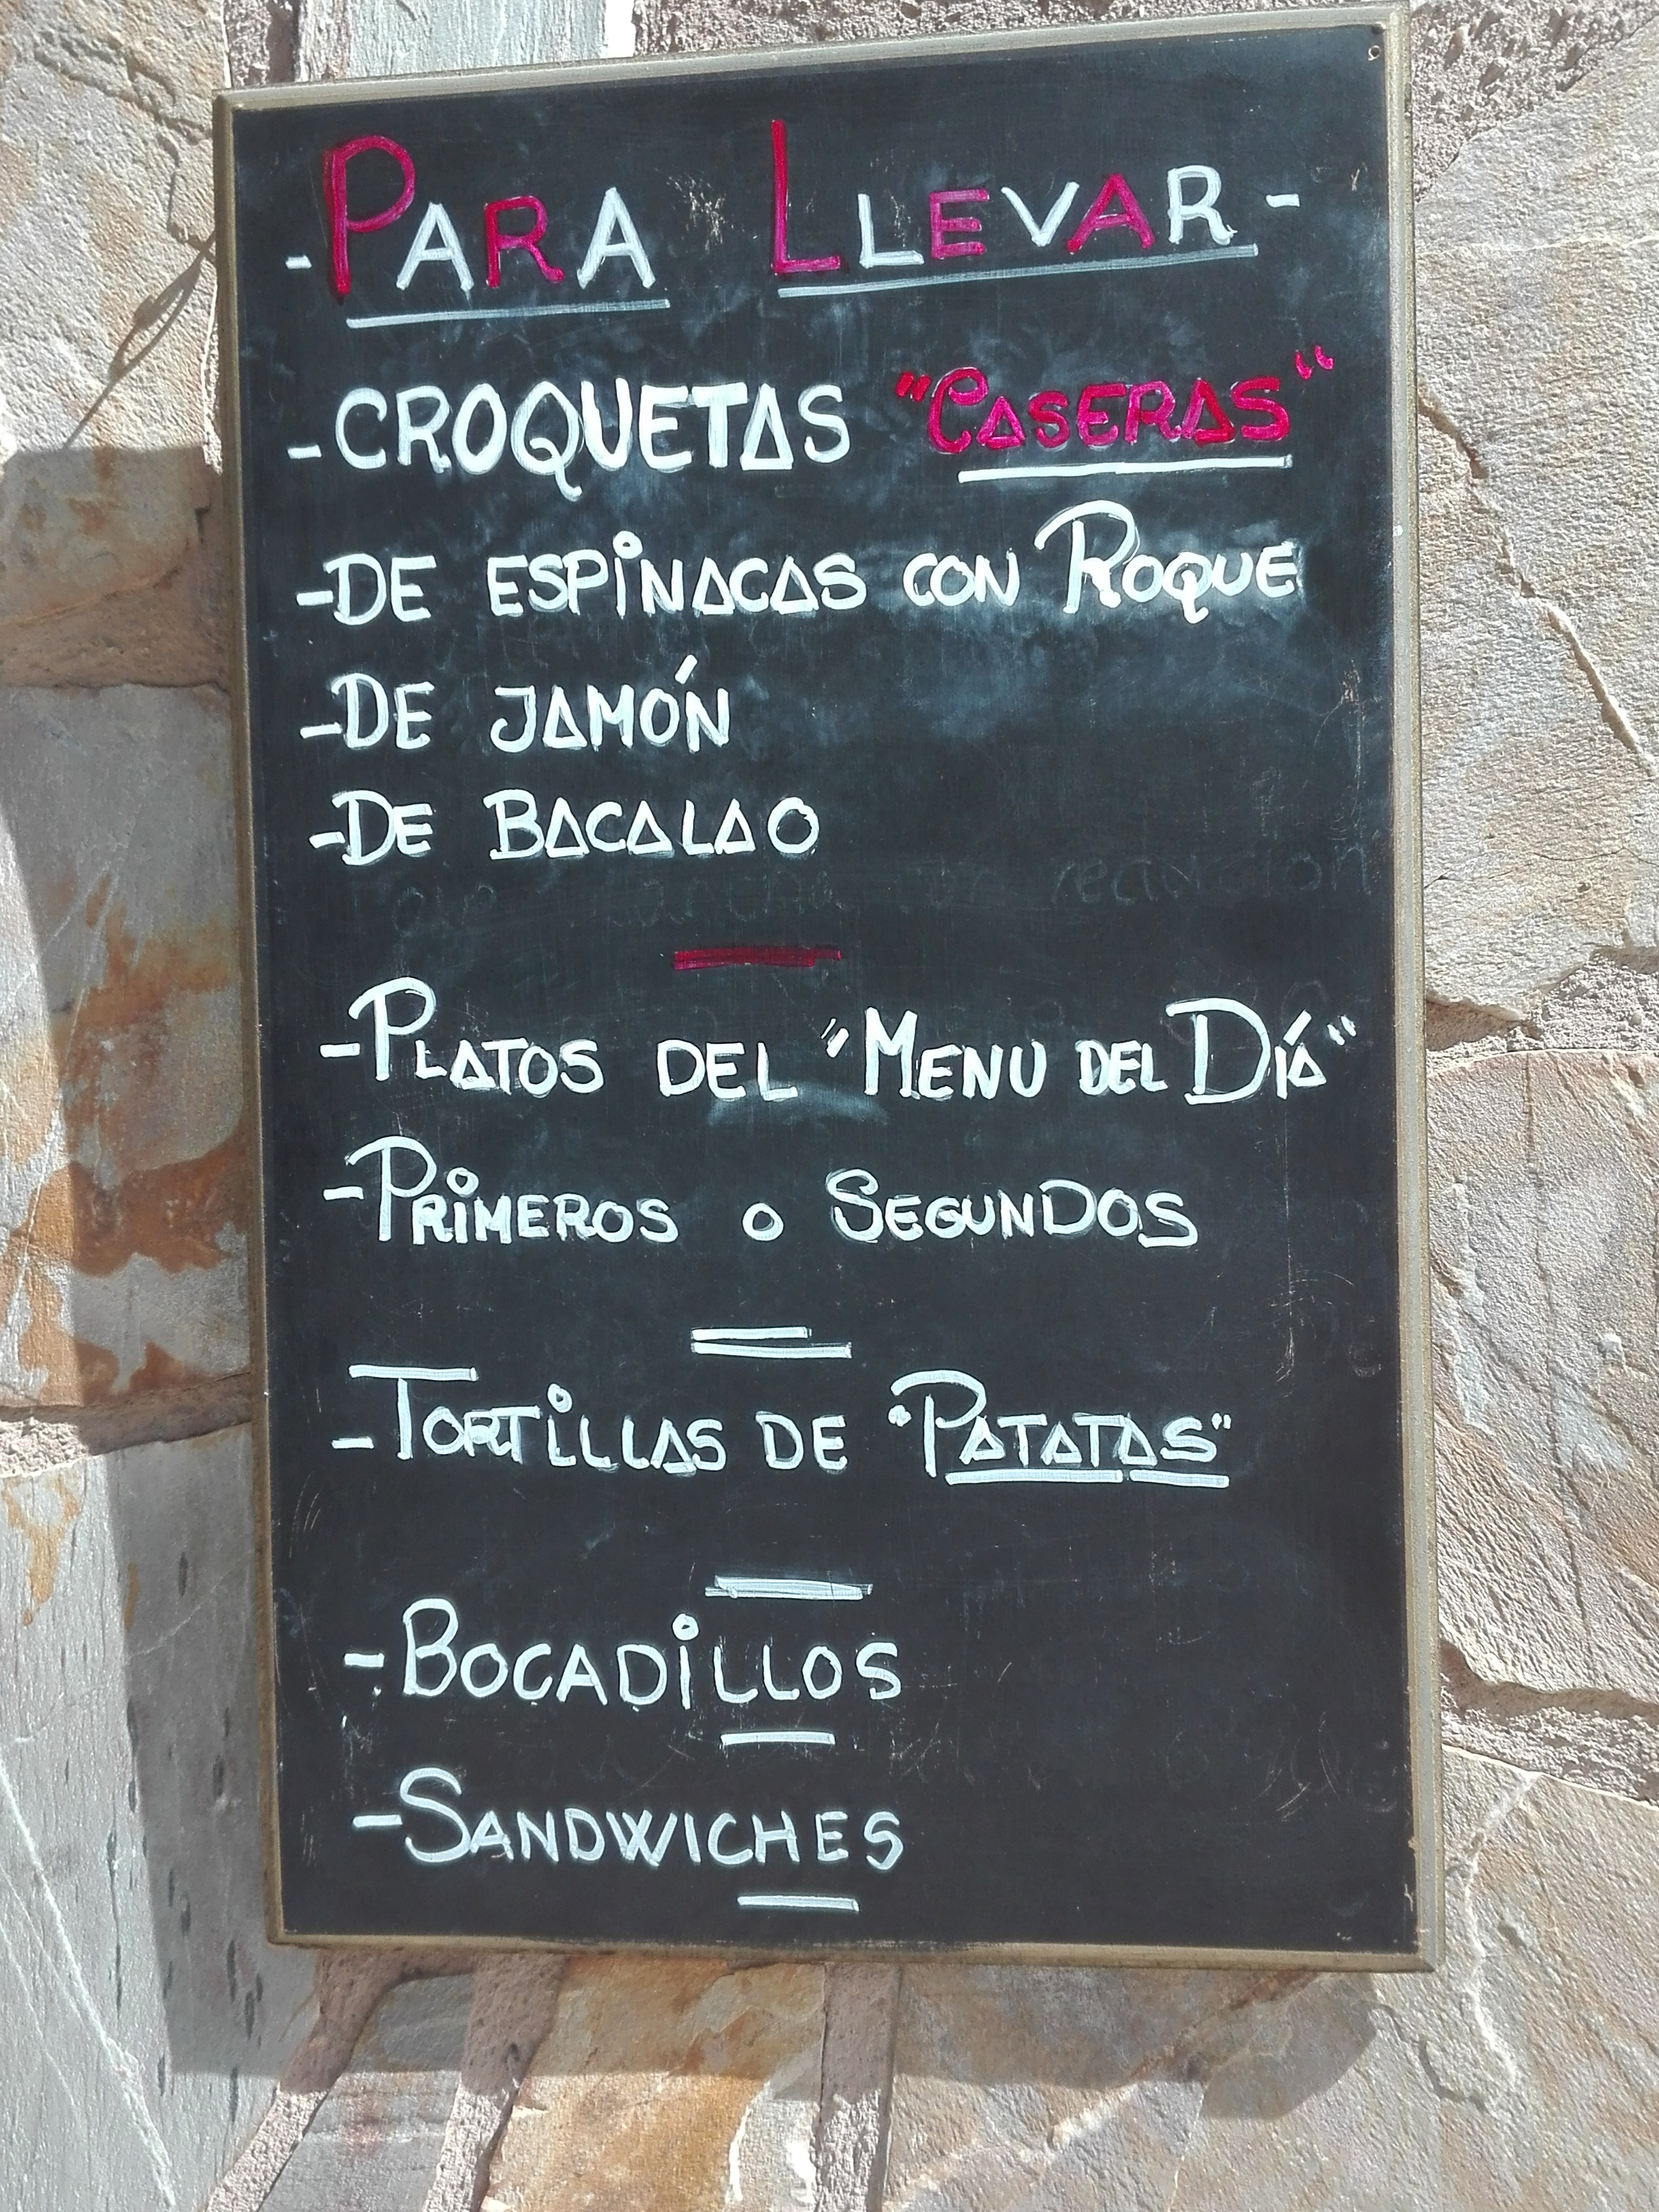 - PARA LLEVAR -
- CROQUETAS "CASERAS"
- DE ESPINACAS CON ROQUE
- DE JAMÓN
- DE BACALAO
- PLATOS DEL "MENU DEL DÍA"
- PRIMEROS O SEGUNDOS
- TORTILLAS DE "PATATAS"
- BOCADILLOS
- SANDWICHES